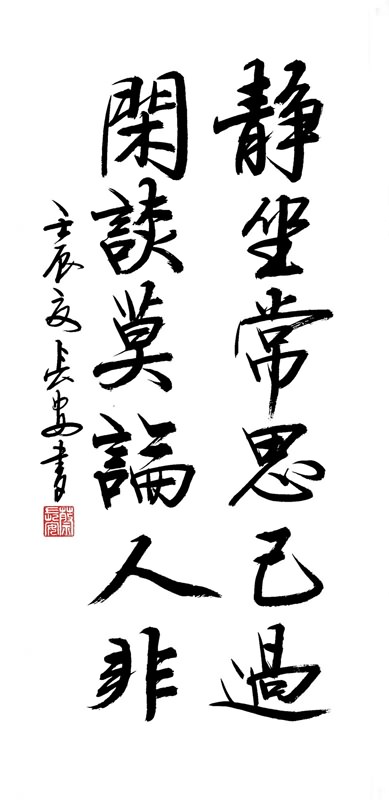 静坐常思己過
閑談莫論人非
壬辰夏长安書